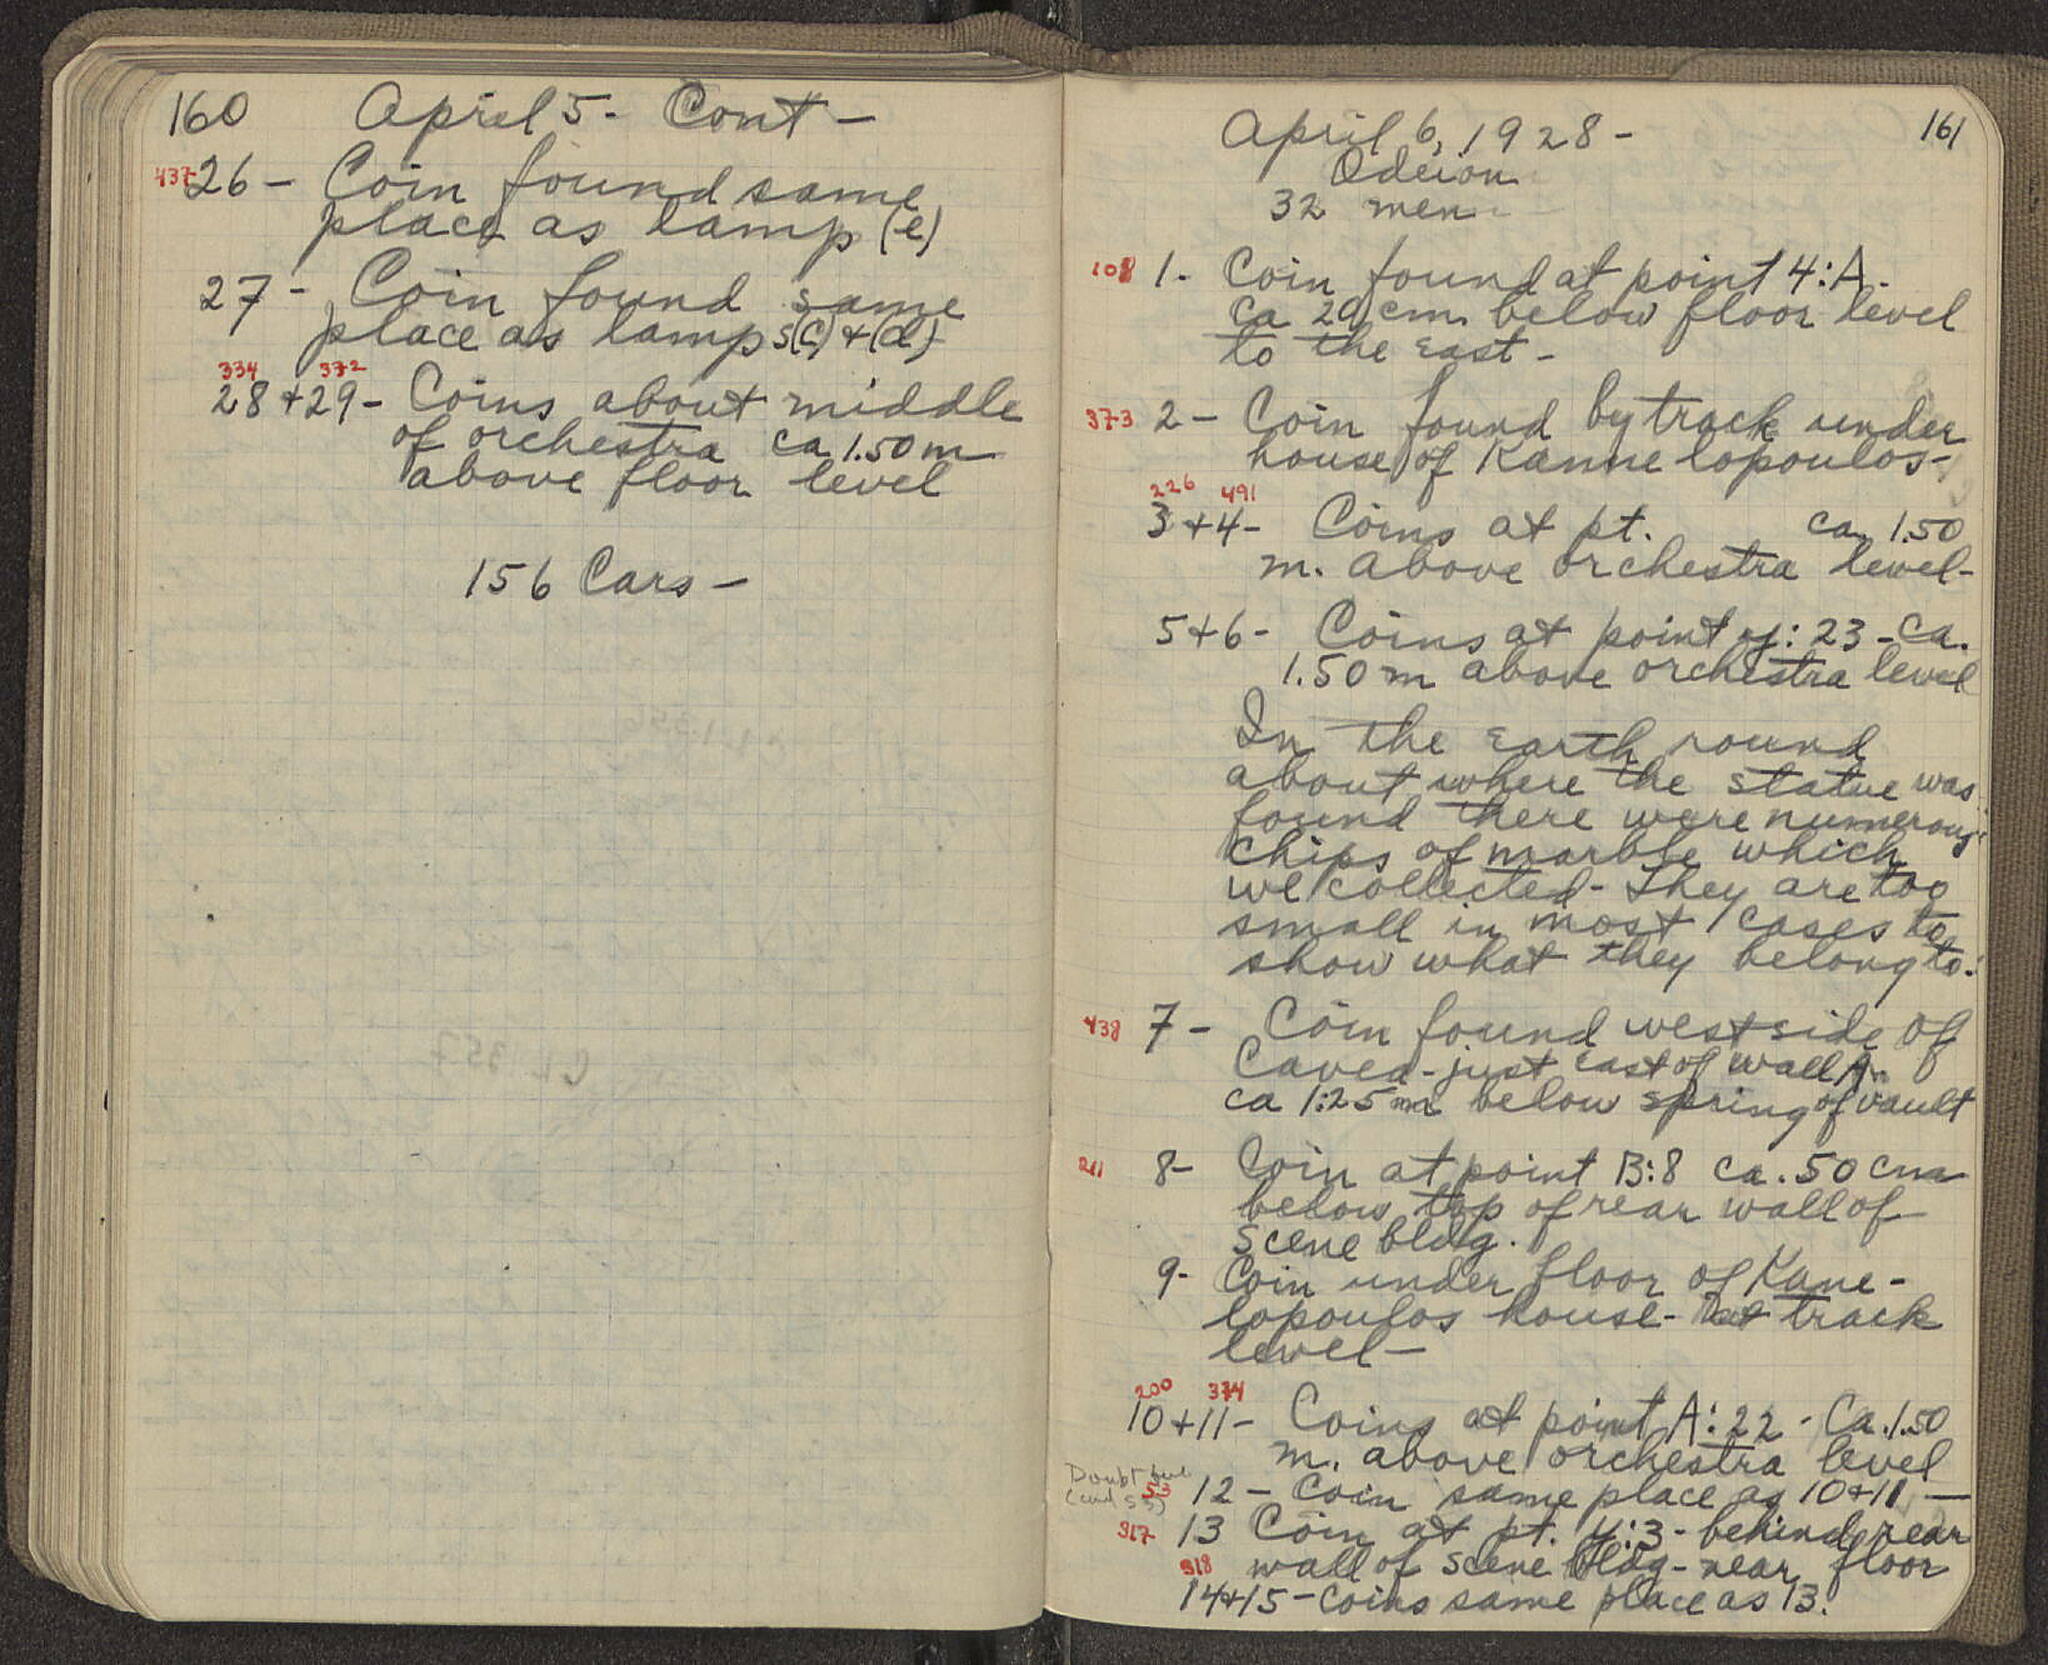 160 April 5 - Cont -
437 26 - Coin found same
place as lamp (e)
27 - Coin found same
place as lamps (c) + (d)
334 372
28 + 29 - Coins about middle
of orchestra ca 1.50 m
above floor level
156 Cars -
161
April 6, 1928 -
Odeion
32 men
108 1 - Coin found at point 4:A -
ca 20 cm below floor level
to the east -
373 2 - Coin found by track under
house of Kannelopoulos -
226 491
3 + 4 - Coins at pt. ca. 1.50
m. above orchestra level -
5 + 6 - Coins at point : 23 - ca.
1.50 m above orchestra level
In the earth round
about where the statue was
found there were numerous
chips of marble which
we collected - They are too
small in most cases to
show what they belong to.
438 7 - Coin found west side of
Cavea - just east of wall
ca 1:25 m below spring of vault
211 8 - Coin at point B:8 ca. 50 cm
below top of rear wall of
scene bldg.
9 - Coin under floor of Kane-
lopoulos house - track
level -
200 374
10 + 11 - Coins at point A:22 - Ca. 1.50
m. above orchestra level
Doubtful
53 12 - Coin same place as 10 + 11 -
317 13 Coin at pt. y:3 - behind rear
318 wall of scene bldg - near floor
14 + 15 - Coins same place as 13.